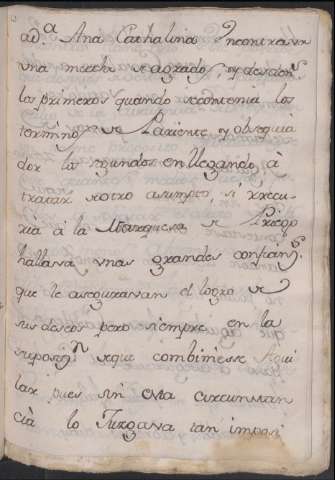 ad.ª Ana Cathalina Incontravan
una mezcla de agrado, y desden
los primeros quando se contenia los
termino de Pariente, y obsequia
dor los segundos en llegando à
tratar de otro asumpto, si recu-
ria à la Marquesa de Priego
hallava unas grandes confianz.s
que le aseguravan el logro de
sus deseos pero siempre en la
suposiz.n de que combiniesse Agui
lar pues sin esta circunstan
cià lo Jurgava tan imposi